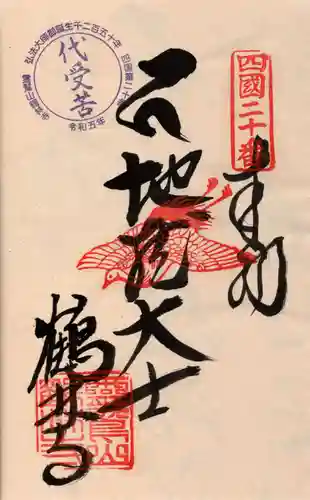 四國二十番
奉納
地蔵大士
鶴林寺
弘法大師御誕生千二百五十年
四国第二十番
代受苦
令和五年